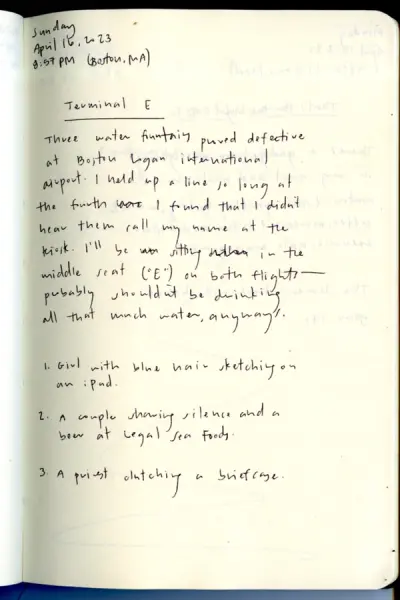 Sunday
April 16, 2023
8:57 PM (Boston, MA)
Terminal E
Three water fountains proved defective
at Boston Logan international
airport. I held up a line so long at
the fourth I found that I didn't
hear them call my name at the
kiosk. I'll be sitting in the
middle seat ("E") on both flights—
probably shouldn't be drinking
all that much water, anyways.
1. Girl with blue hair sketching on
an ipad.
2. A couple sharing silence and a
beer at Legal Sea Foods.
3. A priest clutching a briefcase.